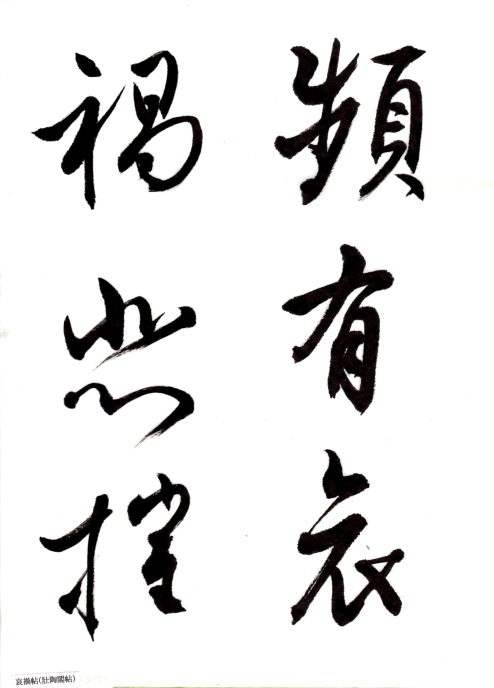 頻有哀
禍悲摧
哀禍帖(壯陶閣帖)